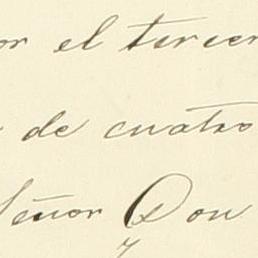 or el tercer
de cuatro
Señor Don
y